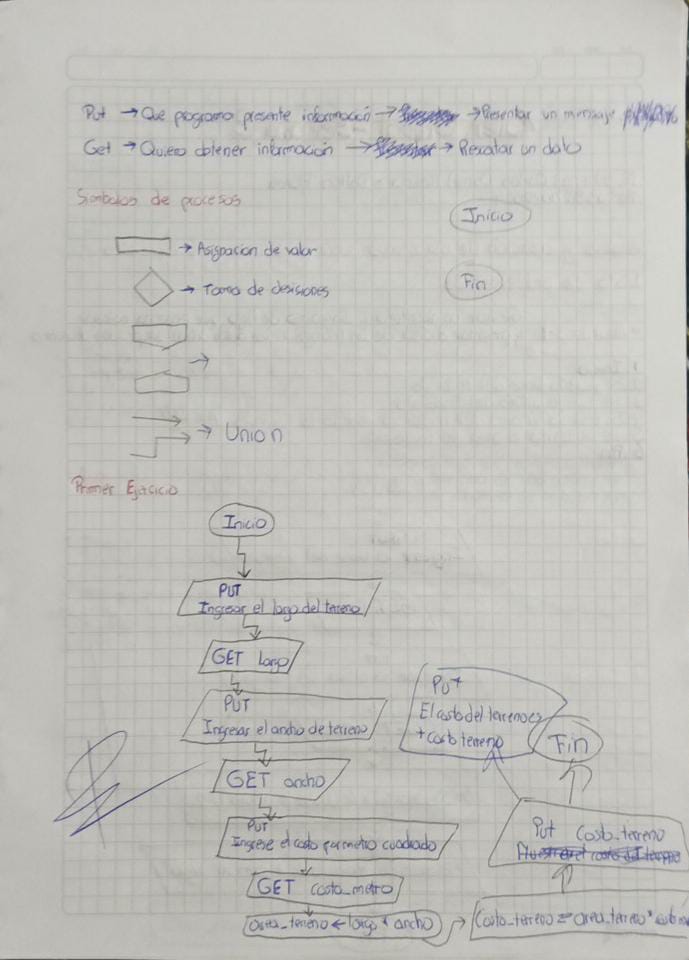 Put → Que programa presente información → → Presentar un mensaje
Get → Quiero obtener información → → Rescatar un dato
Simbolos de procesos
Inicio
→ Asignacion de valor
Fin
→ Toma de desisiones
→
→ Union
Primer Ejercicio
Inicio
PUT
Ingresar el largo del terreno
GET largo
PUT
Ingresar el ancho de terreno
GET ancho
PUT
Ingrese el costo por metro cuadrado
GET costo_metro
area_terreno ← largo * ancho
Costo_terreno = area_terreno *
Put Costo_terreno
Put
El costo del terreno es
+ costo terreno
Fin